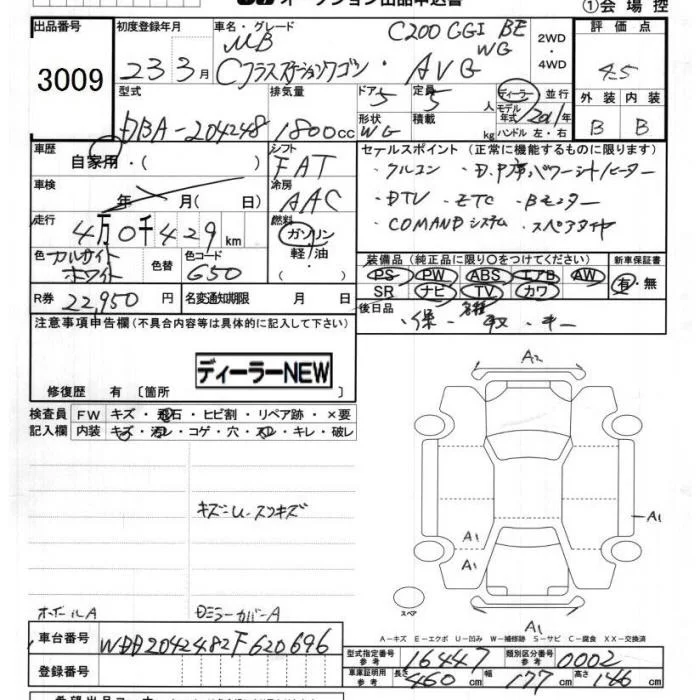 オークション出品申込書 ①会場控
出品番号 初度登録年月 車名・グレード 評価点
3009 23 3月 MB C200 CGI BE WG 2WD・4WD 4.5
Cクラスステーションワゴン・AVG
型式 排気量 ドア 5 定員 5人 ディーラー 並行 外装 内装
DBA-204248 1800cc 形状 WG 積載 kg モデル年式/2011年 ハンドル 左・右 B B
車歴 自家用・( ) シフト FAT セールスポイント(正常に機能するものに限ります)
・クルコン ・D.P席パワーシート/ヒーター
車検 年 月( 日) 冷房 AAC ・DTV ・ETC ・Bモニター
走行 4万0千429km 燃料 ガソリン 軽油 ・( ) ・COMANDシステム ・スペアタイヤ
色 カルサイトホワイト 色替 色コード 650 装備品(純正品に限り○をつけてください) 新車保証書
PS PW ABS エアB AW 有・無
R券 22,950円 名変通知期限 月 日 SR ナビ TV カワ
後日品 ・保 ・取 ・キー
注意事項申告欄(不具合内容等は具体的に記入して下さい)
ディーラーNEW
修復歴 有〔箇所 〕
検査員 FW キズ・飛石・ヒビ割・リペア跡・×要
記入欄 内装 キズ・汚レ・コゲ・穴・スレ・キレ・破レ
A2
A1
A1
A1
A1
スペア
ホイールA
A-キズ E-エクボ U-凹み W-補修跡 S-サビ C-腐食 XX-交換済
車台番号 WDD2042482F620696
型式指定番号 参考 16447 類別区分番号 参考 0002
登録番号 車庫証明用 参考 長さ 460cm 幅 177cm 高さ 146cm